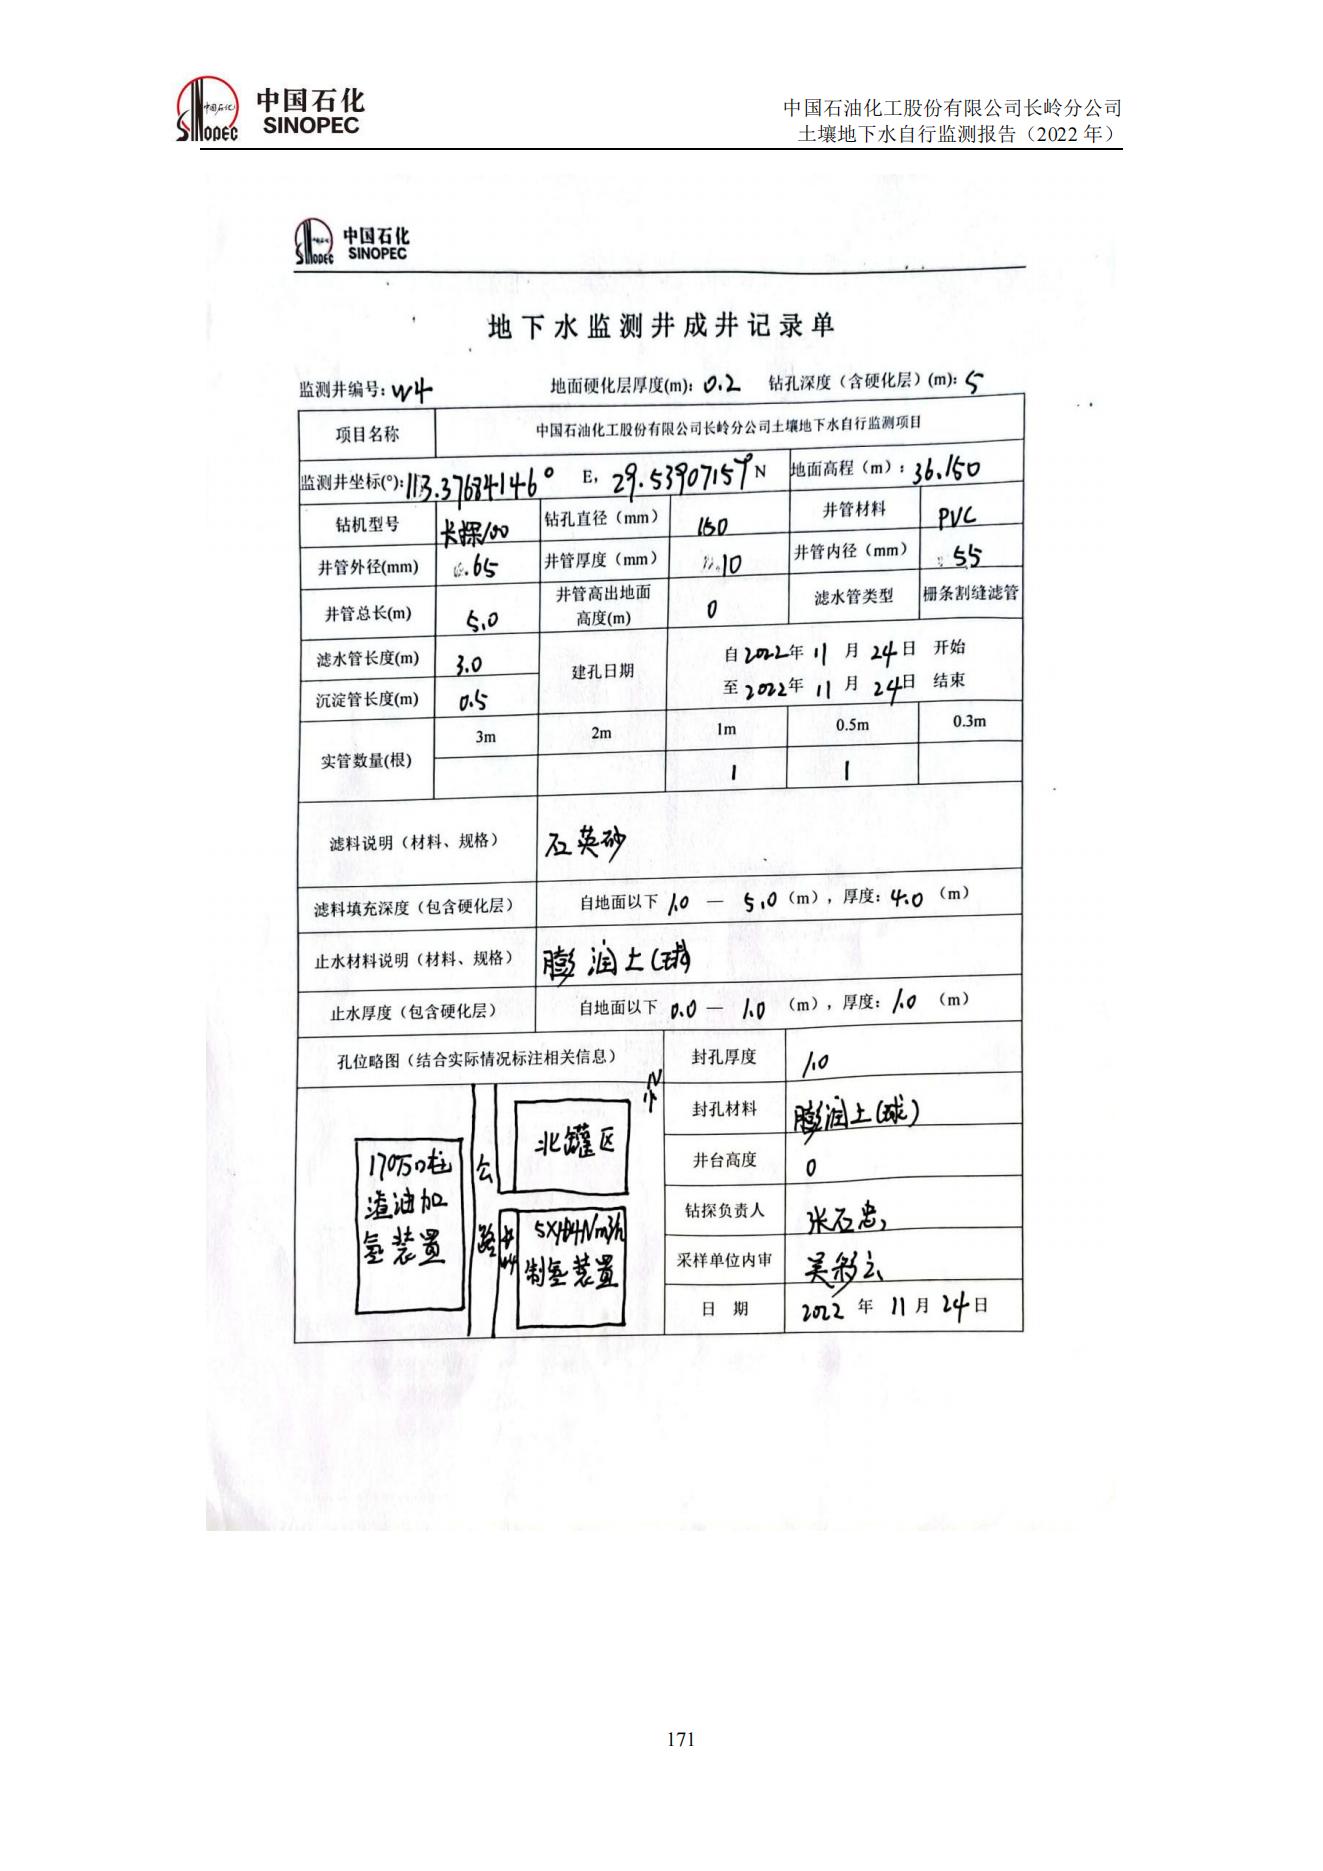 中国石化
SINOPEC
中国石油化工股份有限公司长岭分公司
土壤地下水自行监测报告（2022 年）
中国石化
SINOPEC
地下水监测井成井记录单
监测井编号: W4 地面硬化层厚度(m): 0.2 钻孔深度（含硬化层）(m): 5
项目名称 中国石油化工股份有限公司长岭分公司土壤地下水自行监测项目
监测井坐标(°): 113.37684146° E, 29.5390715° N 地面高程（m）: 36.150
钻机型号 卡探100 钻孔直径（mm） 150 井管材料 PVC
井管外径(mm) 65 井管厚度（mm） 10 井管内径（mm） 55
井管总长(m) 5.0 井管高出地面高度(m) 0 滤水管类型 栅条割缝滤管
滤水管长度(m) 3.0 建孔日期 自2022年 11 月 24日 开始
沉淀管长度(m) 0.5 至2022年 11 月 24日 结束
实管数量(根) 3m 2m 1m 0.5m 0.3m
1 1
滤料说明（材料、规格） 石英砂
滤料填充深度（包含硬化层） 自地面以下 1.0 — 5.0（m），厚度: 4.0（m）
止水材料说明（材料、规格） 膨润土(球)
止水厚度（包含硬化层） 自地面以下 0.0 — 1.0（m），厚度: 1.0（m）
孔位略图（结合实际情况标注相关信息） 封孔厚度 1.0
N
封孔材料 膨润土(球)
井台高度 0
钻探负责人 张石忠
采样单位内审 吴彩云
日 期 2022 年 11 月 24日
170万吨
渣油加
氢装置
公
路
北罐区
制氢装置
171